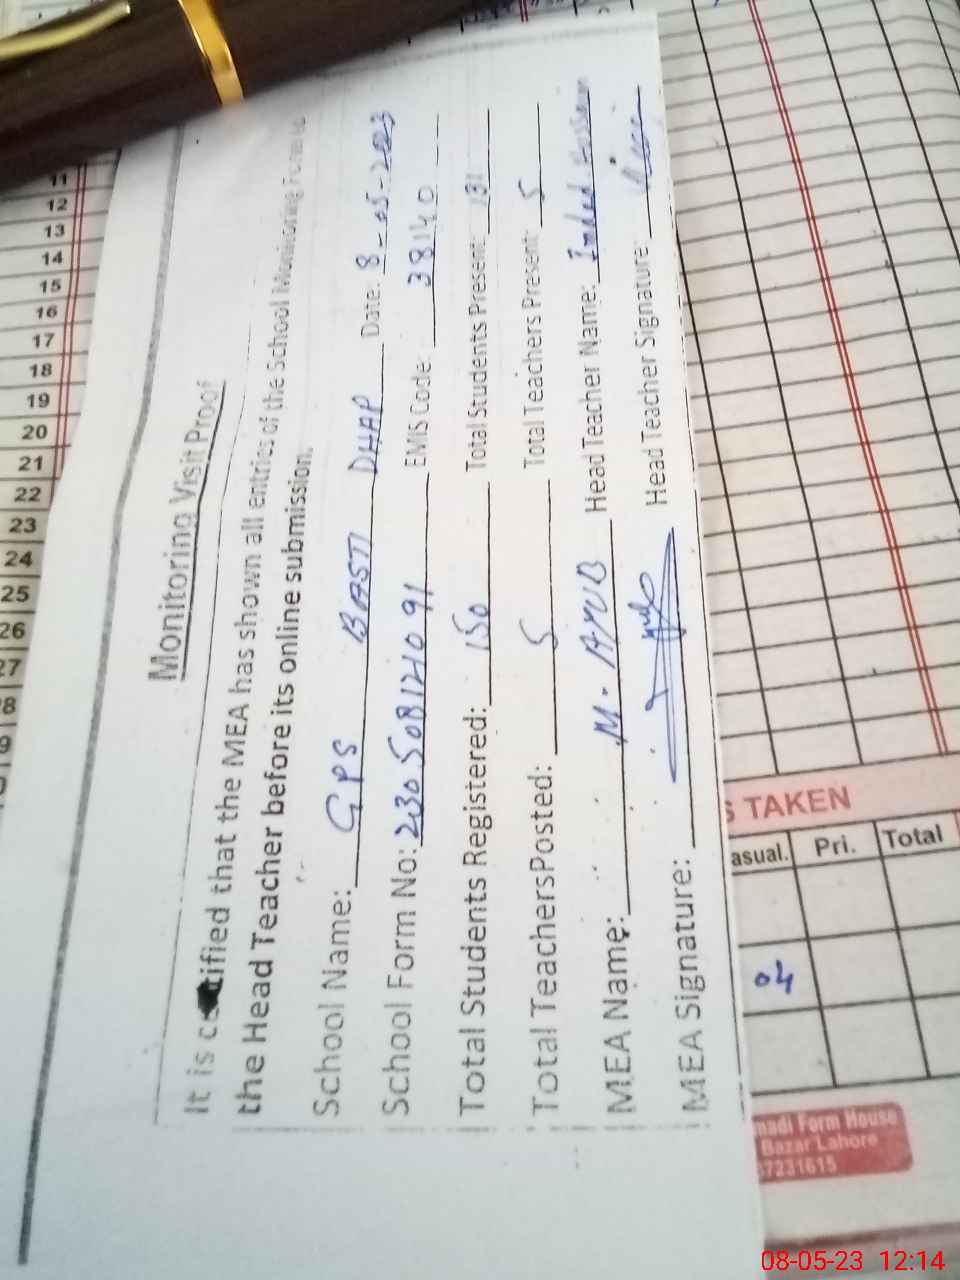 Monitoring Visit Proof
It is certified that the MEA has shown all entries of the School Monitoring Form to
the Head Teacher before its online submission.
School Name: GPS BASTI DHAP Date: 8-05-2023
School Form No: EMIS Code: 38140
Total Students Registered: 150 Total Students Present: 131
Total TeachersPosted: 5 Total Teachers Present: 5
MEA Name: M. AYUB Head Teacher Name:
MEA Signature: Head Teacher Signature:
11
12
13
14
15
16
17
18
19
20
21
22
23
24
25
26
27
8
9
S TAKEN
asual. Pri. Total
04
madi Form House
Bazar Lahore
37231615
08-05-23 12:14